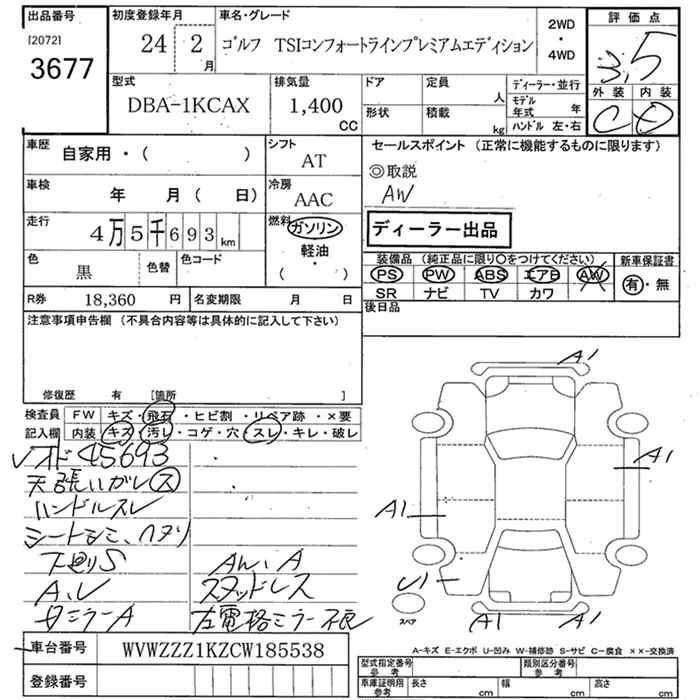 出品番号
[2072]
3677
初度登録年月
24 2
月
車名・グレード
ゴルフ TSIコンフォートラインプレミアムエディション
2WD
・
4WD
評価点
3.5
外装 内装
C D
型式
DBA-1KCAX
排気量
1,400
cc
ドア
定員
人
形状
積載
kg
ディーラー・並行
モデル年式 年
ハンドル 左・右
車歴
自家用・( )
シフト
AT
車検
年 月( 日)
冷房
AAC
走行
4万5千693km
燃料
ガソリン
軽油
・
( )
色
黒
色替
色コード
R券 18,360 円
名変期限 月 日
セールスポイント (正常に機能するものに限ります)
◎取説
AW
ディーラー出品
装備品 (純正品に限り○をつけてください)
新車保証書
PS PW ABS エアB AW
有・無
SR ナビ TV カワ
後日品
注意事項申告欄 (不具合内容等は具体的に記入して下さい)
修復歴 有 [箇所 ]
検査員
記入欄
FW キズ・飛石・ヒビ割・リペア跡・×要
内装 キズ・汚レ・コゲ・穴・スレ・キレ・破レ
45693
天張いガレ ス
ハンドルスレ
シートシミ、ヘタリ
下廻りS
A、U
左ミラーA
A
スタッドレス
左電格ミラー不良
A1
A1
A1
U1
スペア
A1
A1
A-キズ E-エクボ U-凹み W-補修跡 S-サビ C-腐食 ××-交換済
車台番号
WVWZZZ1KZCW185538
登録番号
型式指定番号
参考
類別区分番号
参考
車庫証明用
参考
長さ cm
幅 cm
高さ cm